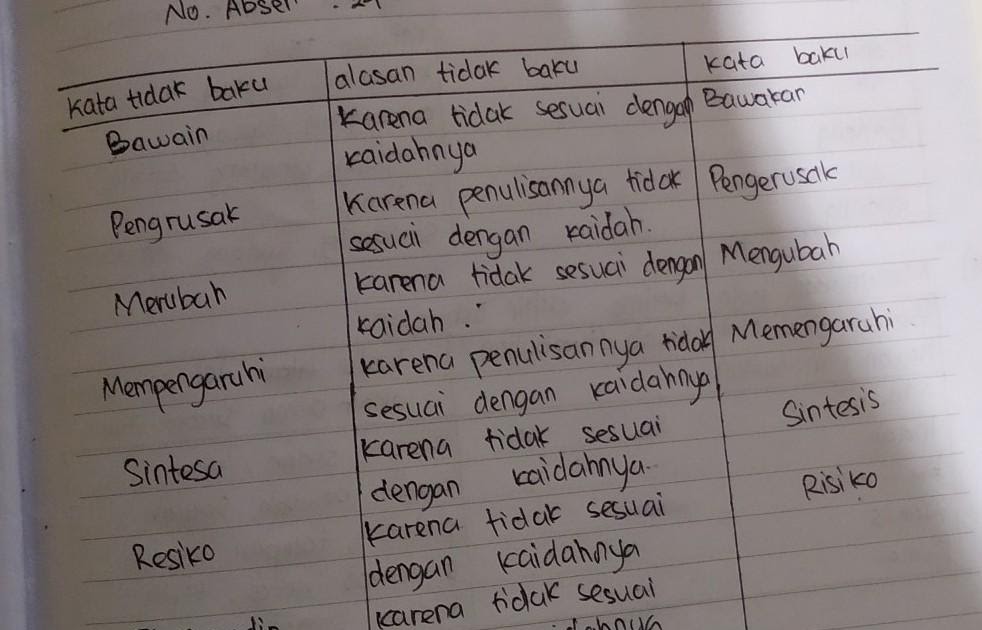 No. Absen : 29
Kata tidak baku | alasan tidak baku | kata baku
Bawain | Karena tidak sesuai dengan | Bawakan
kaidahnya
Pengrusak | Karena penulisannya tidak | Pengerusak
sesuai dengan kaidah.
Merubah | karena tidak sesuai dengan | Mengubah
kaidah.
Mempengaruhi | karena penulisannya tidak | Memengaruhi
sesuai dengan kaidahnya
Sintesa | karena tidak sesuai | Sintesis
dengan kaidahnya.
Resiko | karena tidak sesuai | Risiko
dengan kaidahnya
karena tidak sesuai